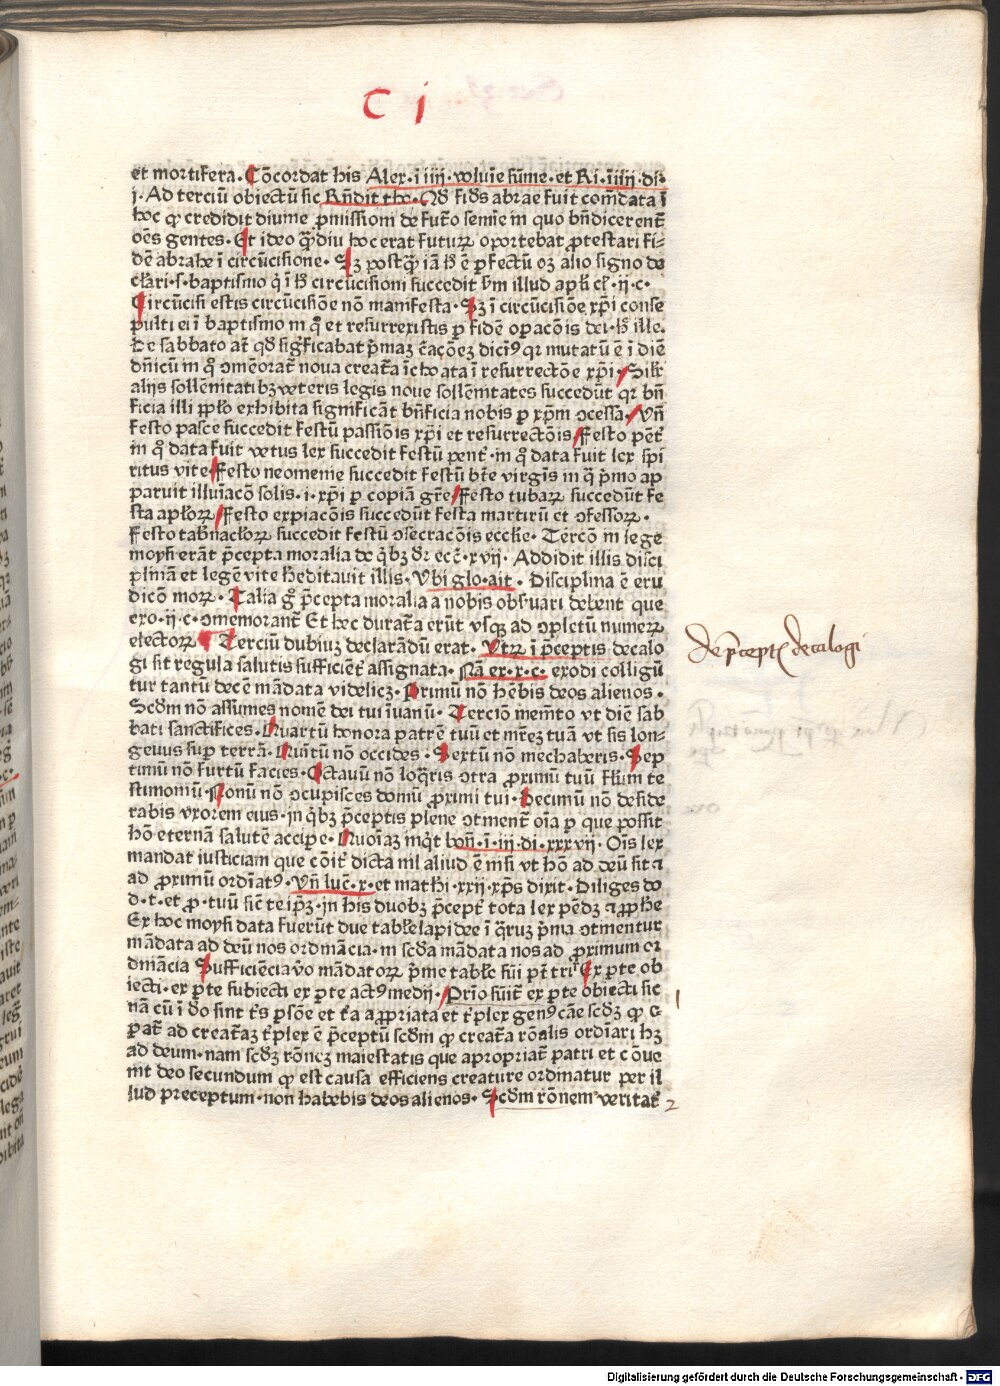 C i
et mortifera. Cōcordat his Alex. ī iiii. volumīe sūme. et Ri. ī iiij. di.
j. Ad terciū obiectū sic Rñdit tho. Qđ fiđs abrae fuit comēdata ī
hoc qꝫ credidit diuine ꝓmissioni de futꝰo semīe in quo bñdicerent̄
oēs gentes. Et ideo qͣ̄diu hoc erat futurꝝ oportebat ꝓtestari fi-
dē abrahe ī circūcisione. Sꝫ postqͣ̄ iā ħ ē ꝑfectū oꝫ alio signo de
clari. s. baptismo qͥ ī ħ circūcisioni succedit ẜm illud apłi cł. ij. c.
Circūcisi estis circūcisiōe nō manifesta. Sꝫ ī circūcisiōe xp̄i conse
pulti ei ī baptismo in qͦ et resurrexistis ꝑ fidē oꝑacōis dei. ħ ille.
De sabbato at̄ qđ sigͥficabat pͥmaꝫ cͣ̄acōeꝫ dicimꝰ qꝛ mutatū ē ī diē
dñicū in qͦ ꝯmēorat̄ noua creatͣ̄a īchoata ī resurrectōe xp̄i. Silr̄
alijs sollēnitatibꝫ veteris legis noue sollēnitates succedūt qꝛ bñ
ficia illi ppło exhibita significāt bñficia nobis ꝑ xp̄m ꝯcessa. Vñ
festo pasce succedit festū passiōis xp̄i et resurrectōis. Festo pēt̄
in qͦ data fuit vetus lex succedit festū pent̄. in qͦ data fuit lex spī
ritus vite. Festo neomenie succedit festū btē virgīs in qͣ pͥmo ap
paruit illuīacō solis. i. xp̄i ꝑ copiā gr̄e. Festo tubaꝝ succedūt fe
sta apłoꝝ. Festo expiacōis succedūt festa martirū et ꝯfessoꝝ.
Festo tabñacłoꝝ succedit festū ꝯsecracōis ecclīe. Tercō in lege
moysi erāt p̄cepta moralia de qͥbꝫ dr̄ ecc̄. xvij. Addidit illis disci
plinā et legē vite ħeditauit illis. Vbi glo. ait. Disciplina ē eru
dicō moꝝ. Talia gͦ p̄cepta moralia a nobis obẜuari debent que
exo. ij. c. ꝯmemorant̄ Et hec duratͣ̄a erūt vsqꝫ ad ꝯpletū numeꝝ
electoꝝ. Terciū dubiuꝫ declarādū erat. Vtꝝ ī p̄ceptis decalo
gi sit regula salutis sufficient̄ assignata. Nā ex. x. c. exodi colligū
tur tantū decē mādata videlicꝫ. Primū nō hēbis deos alienos.
Scđm nō assumes nomē dei tui īuanū. Terciō memēto vt diē sab
bati sanctifices. Quartū honora patrē tuū et mr̄eꝫ tuā vt sis lon-
geuus suꝑ terrā. Quītū nō occides. Sextū nō mechaberis. Sep
timū nō furtū facies. Octauū nō loqͣ̄ris ꝯtra ꝓximū tuū fłsm te
stimoniū. Nonū nō ꝯcupisces domū ꝓximi tui. Decimū nō deside
rabis vxorem eius. jn qͥbꝫ p̄ceptis plene ꝯtinent̄ oīa ꝑ que possit
hō eternā salutē accipe. Quoīaꝫ inqͥt boñ. ī. iij. di. xxxvij. Oīs lex
mandat iusticiam que cōit̄ dicta nīl aliud ē nisi vt hō ad deū sit ⁊
ad ꝓximū ordīatꝰ. Vñ luc̄. x. et mathi. xxij. xp̄s dixit. Diliges do
d. t. et ꝓ. tuū sic̄ te ip̄ꝫ. jn his duobꝫ p̄cept̄ tota lex pēdꝫ ⁊ ꝓphē
Ex hoc moysi data fuerūt due tabłe lapidee ī qͣruꝫ pͥma ꝯtinentur
mādata ad deū nos ordinācia. in scđa mādata nos ad ꝓximum or
dinācia Sufficiēcia v̄o mādatoꝝ pͥme tabłe sūi pt̄ triͬ Ex ꝑte ob
iecti. ex ꝑte subiecti ex ꝑte actꝰ medij. Prīo sūit̄ ex ꝑte obiecti sic
nā cū ī dō sint tr̄s ꝑsōe et tr̄a aꝓpriata et tͥplex genꝰ cāe scđꝫ qꝫ ꝯ-
ꝑat̄ ad creatͣ̄aꝫ tͥplex ē p̄ceptū scđm qꝫ creatͣ̄a rōalis ordīari hꝫ
ad deum. nam scđꝫ rōneꝫ maiestatis que apropriat̄ patri et cōue
nit deo secundum qꝫ est causa efficiens creature ordinatur per il
lud preceptum. non habebis deos alienos. Scđm rōnem veritat̄
de p̄ceptis decalogi
1
2
Digitalisierung gefördert durch die Deutsche Forschungsgemeinschaft - DFG